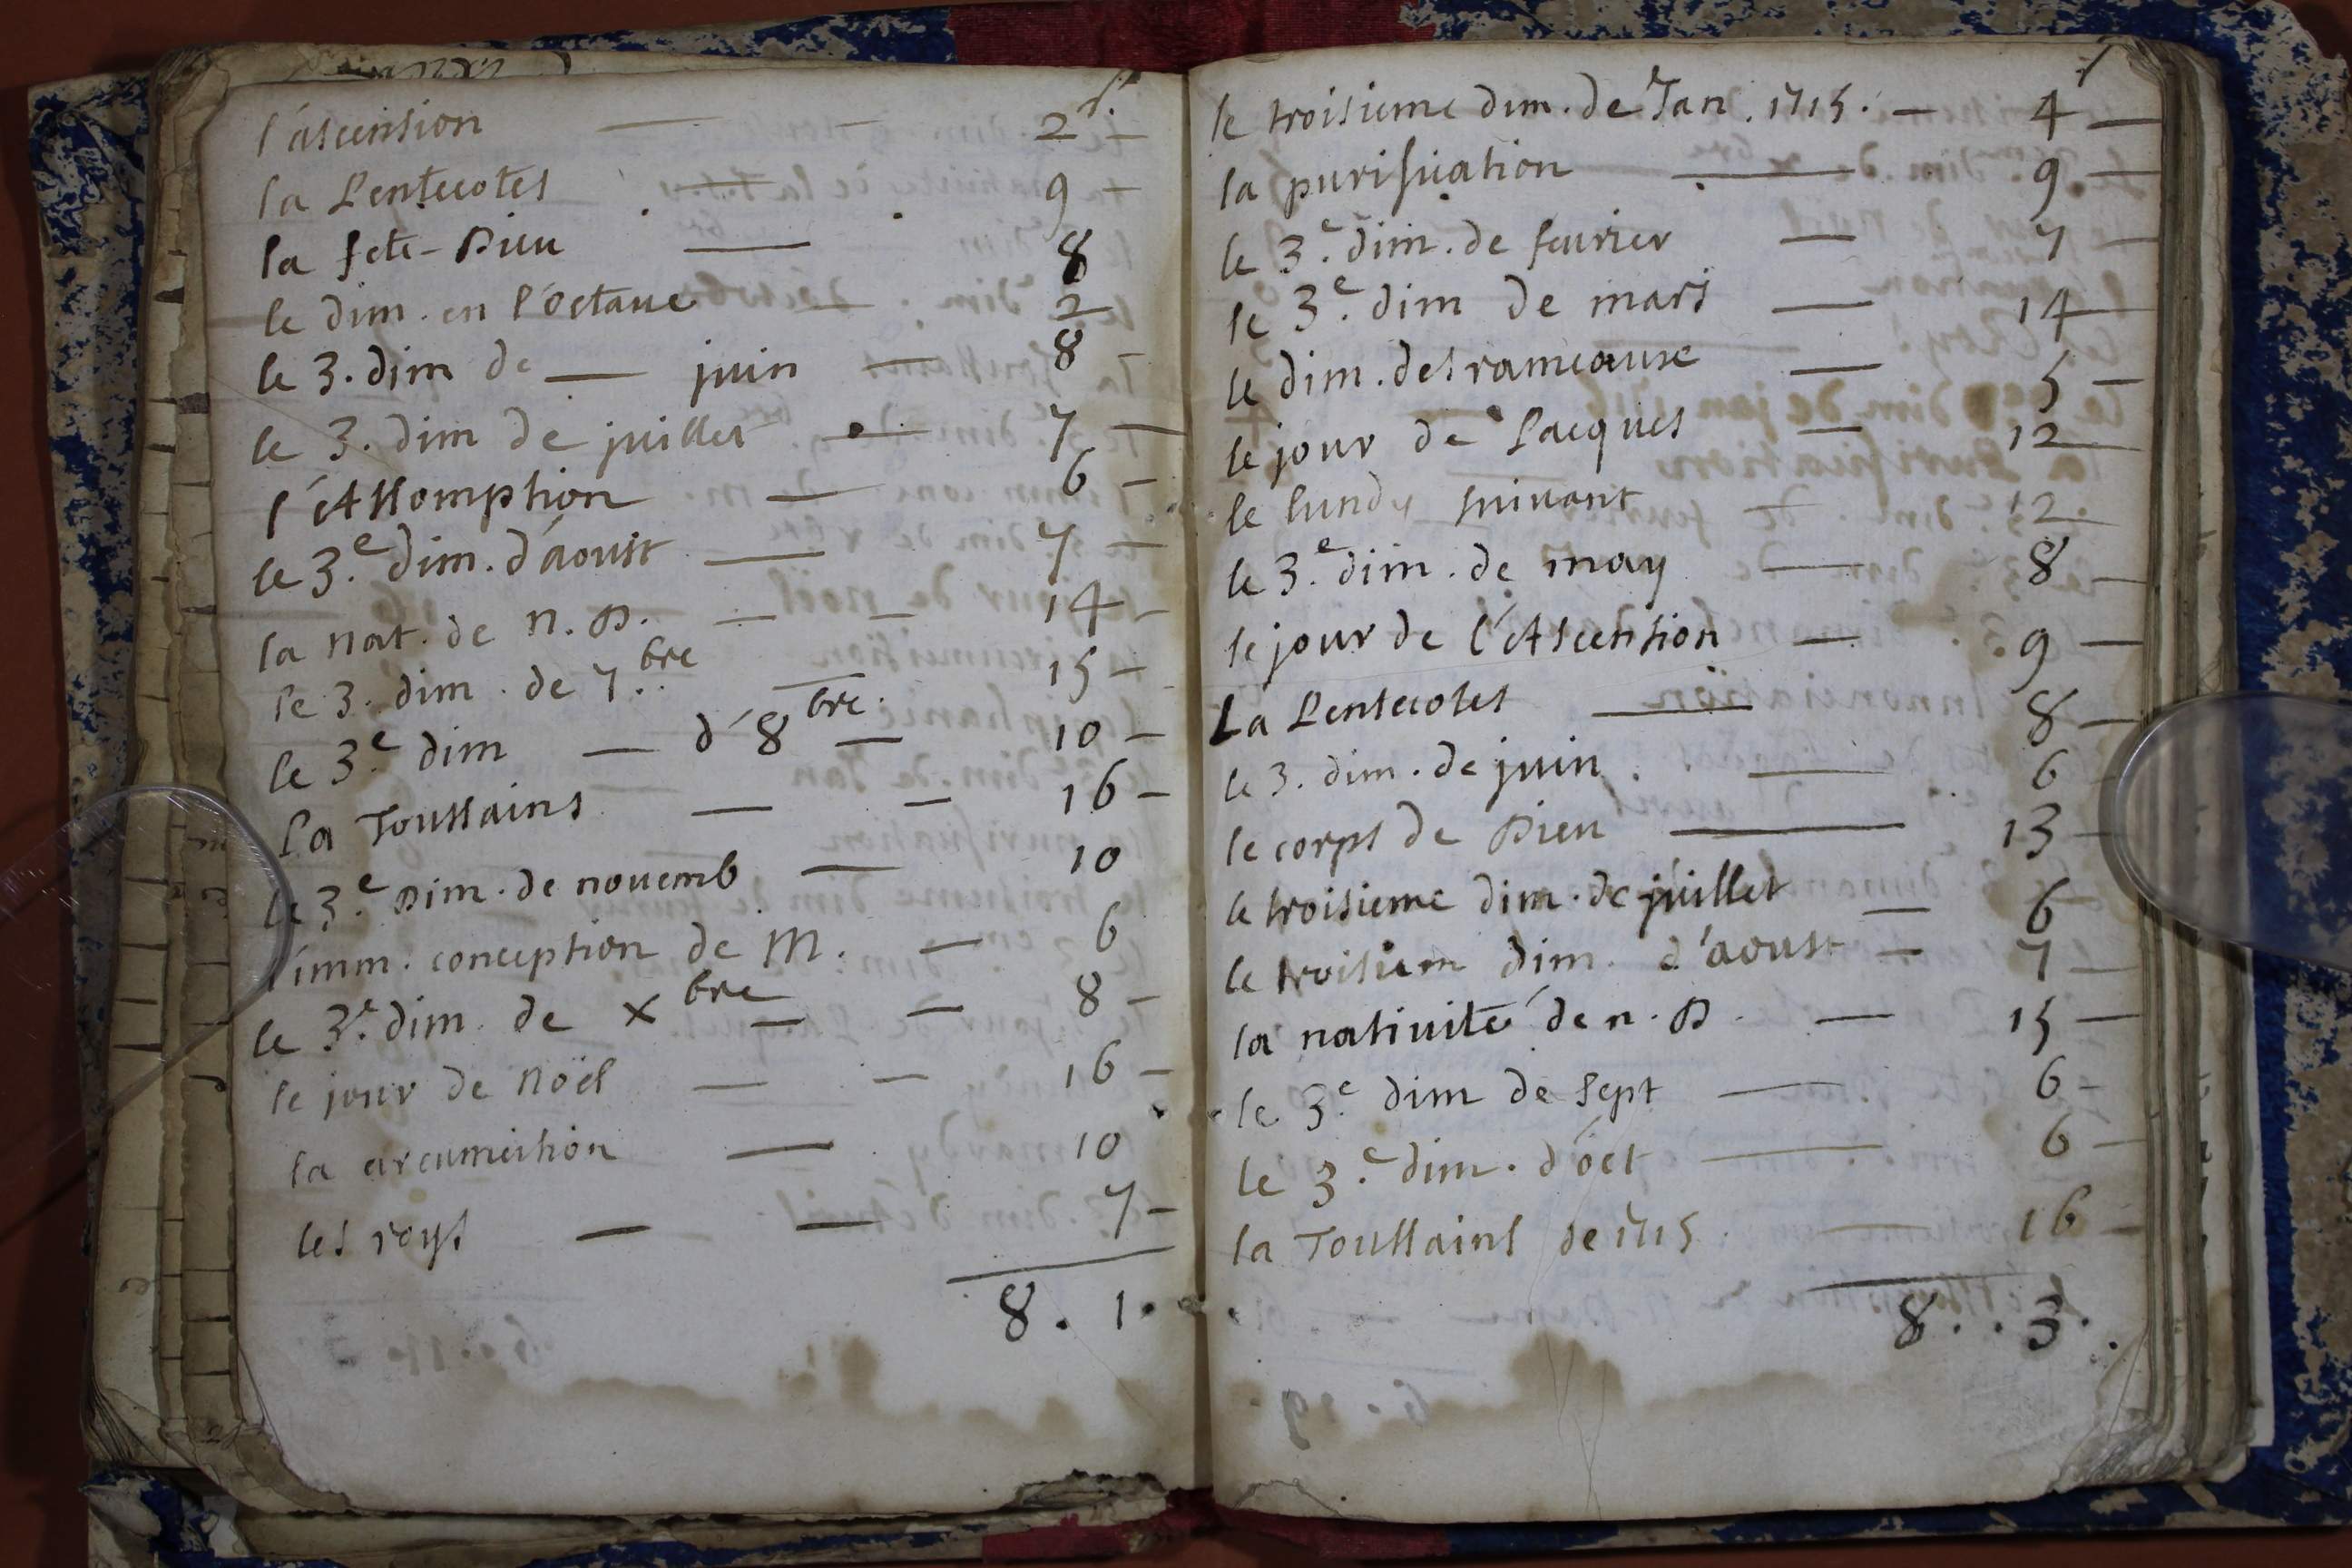 l'ascension — — 2 s. —
la Pentecotes — 9 —
la fete-Dieu — 8
le dim. en l'octave — 2
le 3. dim de — juin — 8 —
le 3. dim de juillet — 7 —
l'Assomption — 6 —
le 3.e dim. d'aoust — 7 —
la nat. de n. D. — — 14 —
le 3. dim. de 7.bre — 15 —
le 3.e dim — d'8bre. — 10 —
La Toussains — — 16 —
le 3.e Dim. de novemb — 10
l'imm. conception de M. — 6
le 3.e dim. de xbre — — 8 —
le jour de Noël — — 16 —
la circumcition — 10
les roys — — 7 —
8 . 1 .
le troisieme dim. de Jan. 1715. — 4 —
la purification — 9 —
le 3.e dim. de fevrier — 7 —
le 3.e dim de mars — 14
le dim. des rameaux — 5 —
le jour de Pacques — 12
le lundy suivant — 12
le 3.e dim. de may — 8 —
le jour de l'Ascension — 9 —
La Pentecotes — 8 —
le 3. dim. de juin . — 6
le corps de Dieu — 13 —
le troisieme dim. de juillet — 6
le troisiem dim. d'aoust — 7 —
la nativité de n. D. — 15 —
le 3.e dim de sept — 6 —
le 3.e dim. d'oct — 6 —
la Toussains de 1715 . — 16 —
8 . . 3 .